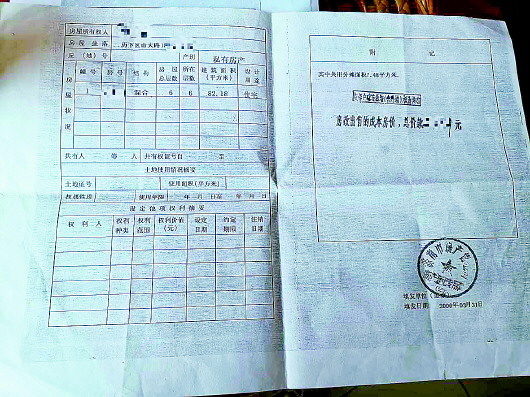 房屋所有权人
房屋坐落 历下区山大路
丘（地）号 产别 私有房产
房屋状况
幢号 房号 结构 房屋总层数 所在层数 建筑面积（平方米） 设计用途
混合 6 6 82.18 住宅
共有人 等 人 共有权证号自 至
土地使用情况摘要
土地证号 使用面积（平方米）
权属性质 使用年限 年 月 日至 年 月 日
设定他项权利摘要
权利人 权利种类 权利范围 权利价值（元） 设定日期 约定期限 注销日期
附 记
其中共用分摊面积7.48平方米。
房改出售的成本房价，总价款 元
填发单位（盖章）
填发日期：2000